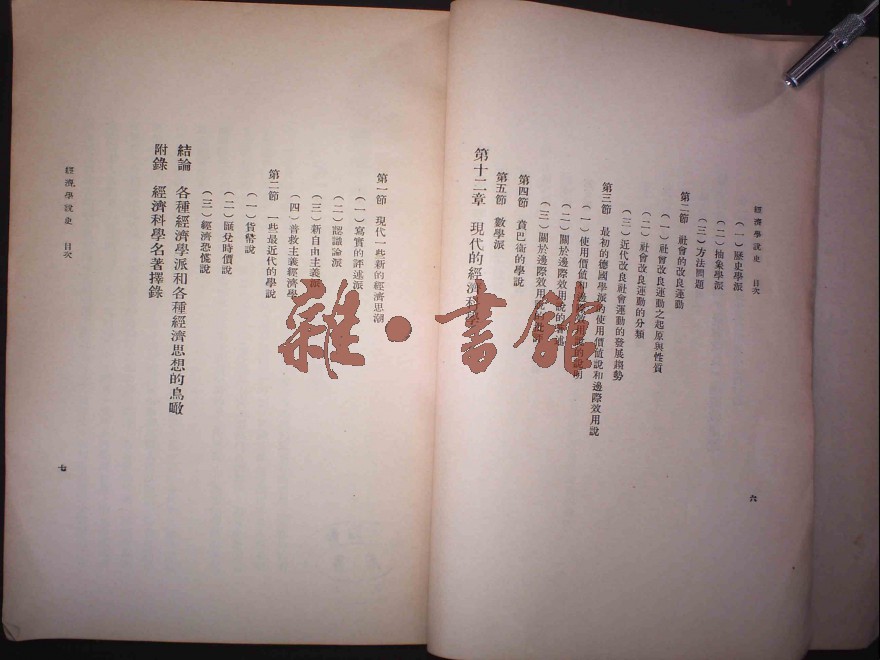 經濟學說史 目次
(一)歷史學派
(二)抽象學派
(三)方法問題
第二節 社會的改良運動
(一)社會改良運動之起原與性質
(二)社會改良運動的分類
(三)近代改良社會運動的發展趨勢
第三節 最初的德國學派的使用價値說和邊際效用說
(一)使用價値和邊際效用說的說明
(二)關於邊際效用說的評述
(三)關於邊際效用說的
第四節 賁巴衞的學說
第五節 數學派
第十二章 現代的經濟科學
六
經濟學說史 目次
第一節 現代一些新的經濟思潮
(一)寫實的評述派
(二)認識論派
(三)新自由主義派
(四)普救主義經濟學
第二節 一些最近代的學說
(一)貨幣說
(二)匯兌時價說
(三)經濟恐慌說
結論 各種經濟學派和各種經濟思想的鳥瞰
附錄 經濟科學名著擇錄
七
雜·書館